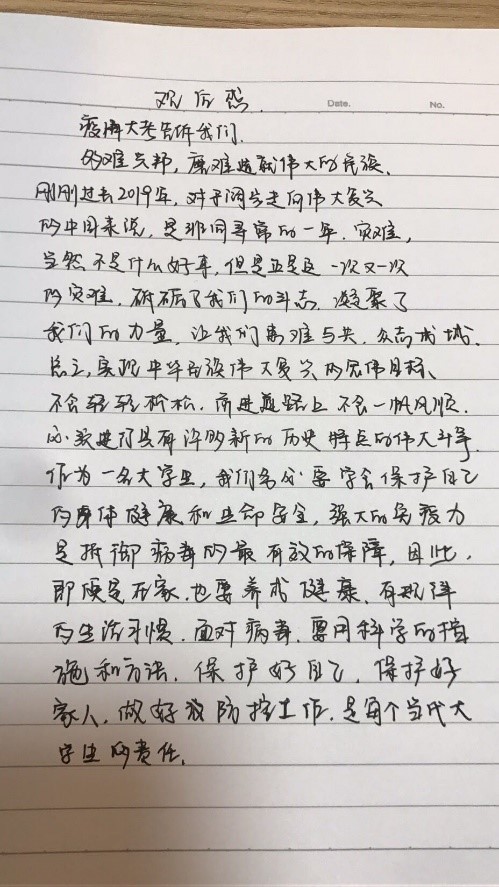 观后感
Date.
No.
疫情大考告诉我们.
多难兴邦, 磨难造就伟大的民族,
刚刚过去2019年, 对于阔步走向伟大复兴
的中国来说, 是非同寻常的一年. 灾难,
当然不是什么好事, 但是正是这一次又一次
的灾难, 砥砺了我们的斗志, 凝聚了
我们的力量, 让我们患难与共, 众志成城.
总之, 实现中华民族伟大复兴的宏伟目标,
不会轻轻松松, 前进道路上不会一帆风顺.
必须进行具有许多新的历史特点的伟大斗争
作为一名大学生, 我们务必要学会保护自己
的身体健康和生命安全, 强大的免疫力
是抵御病毒的最有效的保障, 因此,
即便是在家, 也要养成健康, 有规律
的生活习惯. 面对病毒, 要用科学的措
施和方法, 保护好自己, 保护好
家人, 做好 防控工作, 是每个当代大
学生的责任.